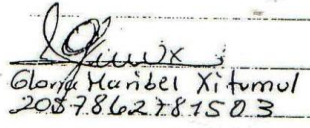 Gloria Maribel Xitumul
2057862781503